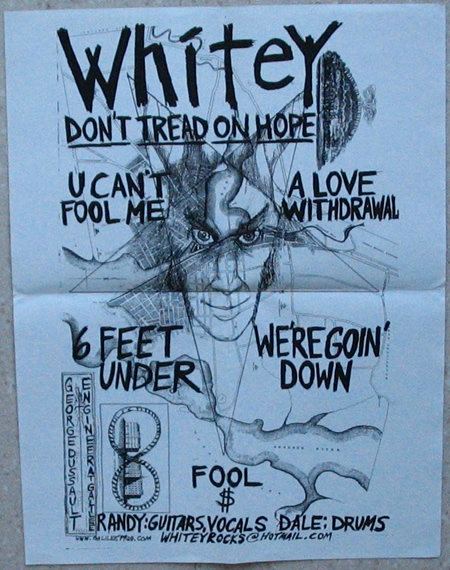 Whitey
DON'T TREAD ON HOPE
U CAN'T
FOOL ME
A LOVE
WITHDRAWAL
6 FEET
UNDER
WE'RE GOIN'
DOWN
GEORGE DUSSAULT
ENGINEER AT GALILEE
FOOL
$
RANDY: GUITARS, VOCALS DALE: DRUMS
WHITEYROCKS@HOTMAIL.COM